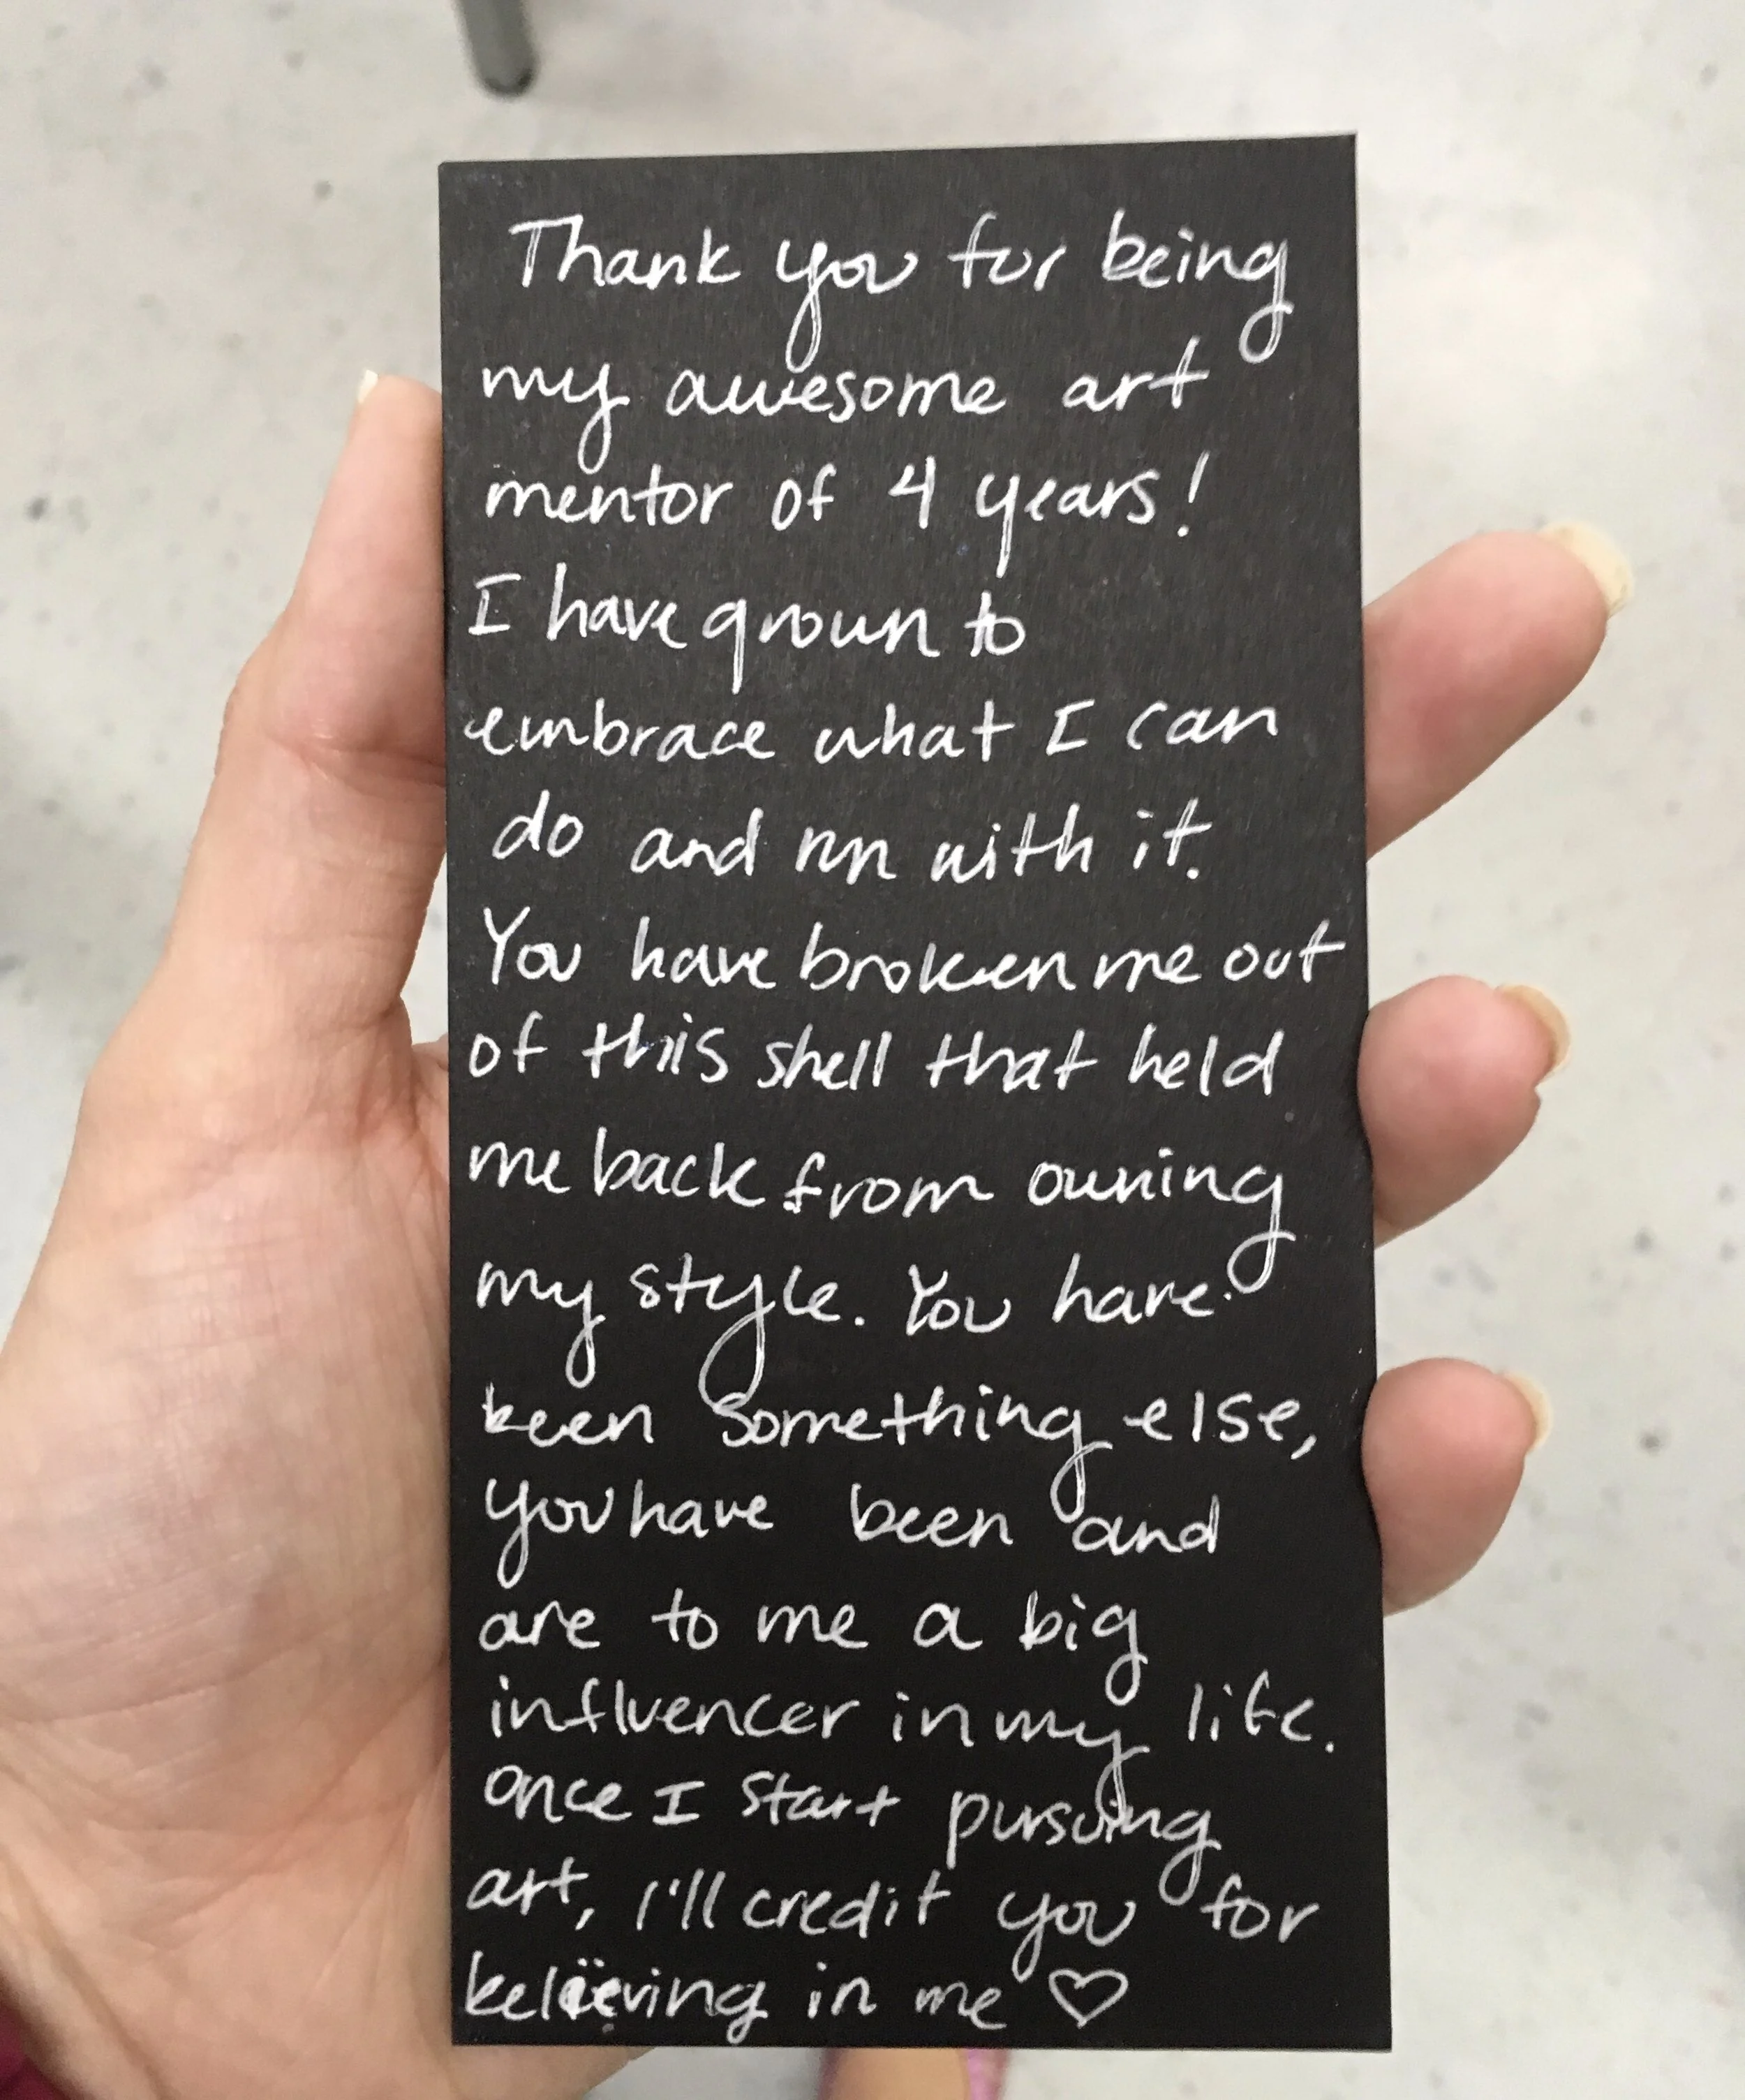 Thank you for being
my awesome art
mentor of 4 years!
I have grown to
embrace what I can
do and run with it.
You have broken me out
of this shell that held
me back from owning
my style. You have
been something else,
you have been and
are to me a big
influencer in my life.
Once I start pursuing
art, I'll credit you for
believing in me ♡